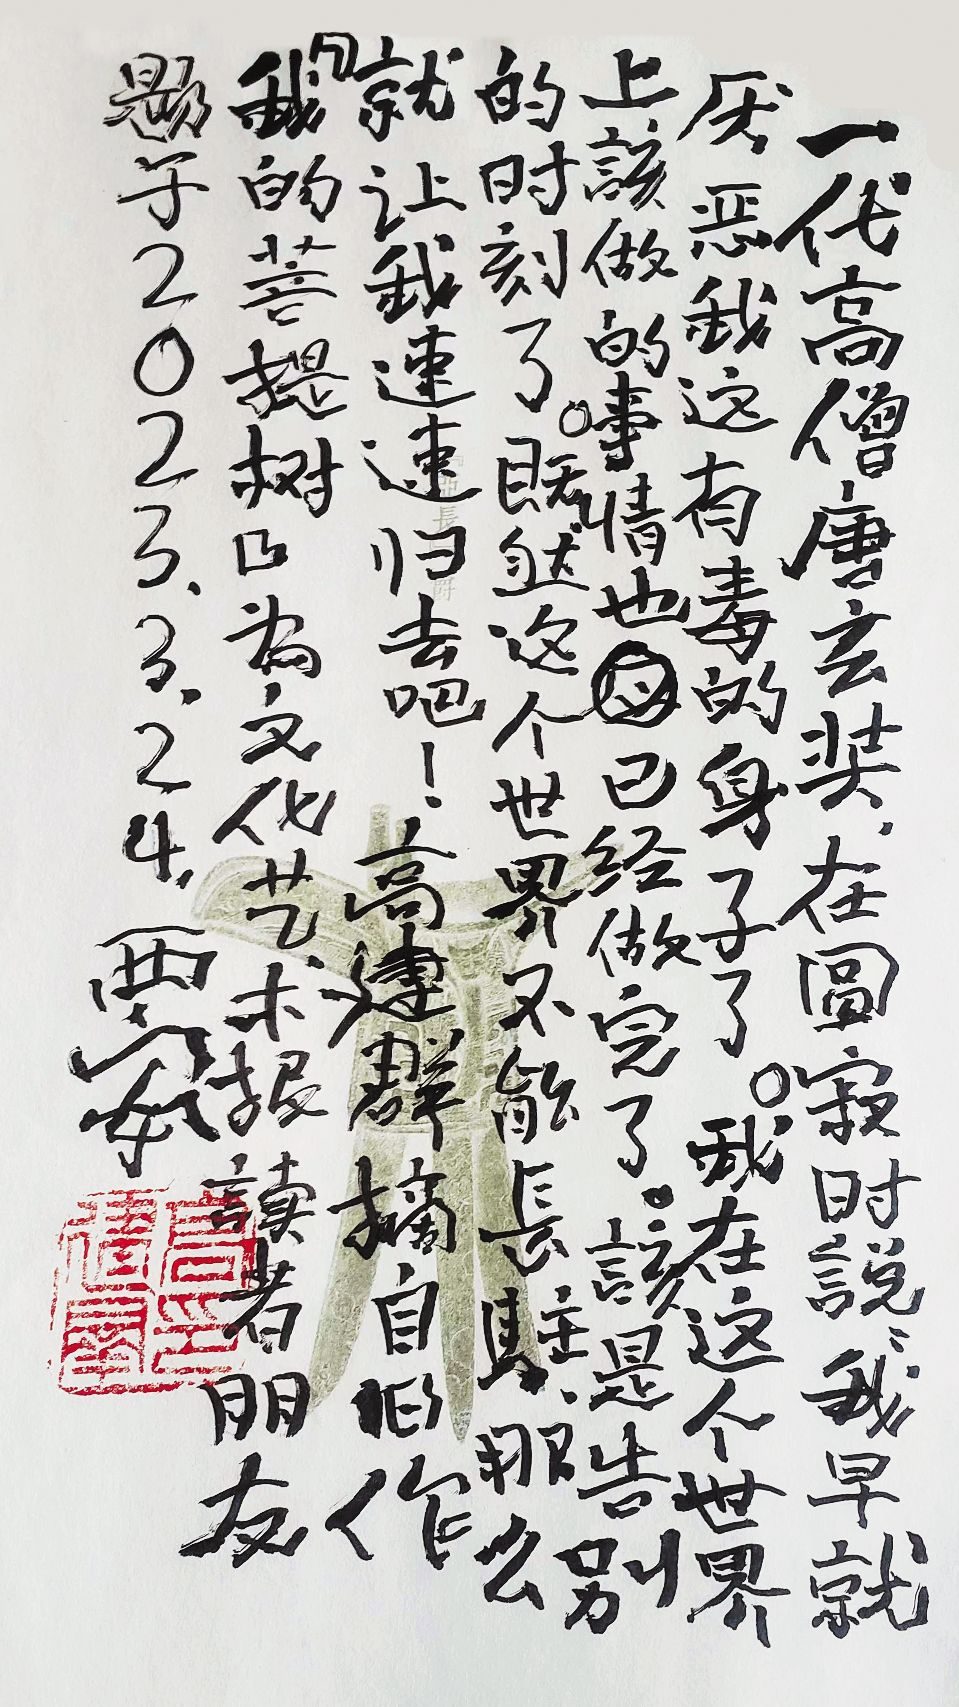 一代高僧唐玄奘.在圓寂时説:我早就
厌恶我这有毒的身子了。我在这个世界
上該做的事情也已经做完了。該是告别
的时刻了。既然这个世界不能長駐.那么
就让我速速归去吧！高建群摘自他作
「我的菩提树」为文化艺术报讀者朋友
题字2023.3.24.